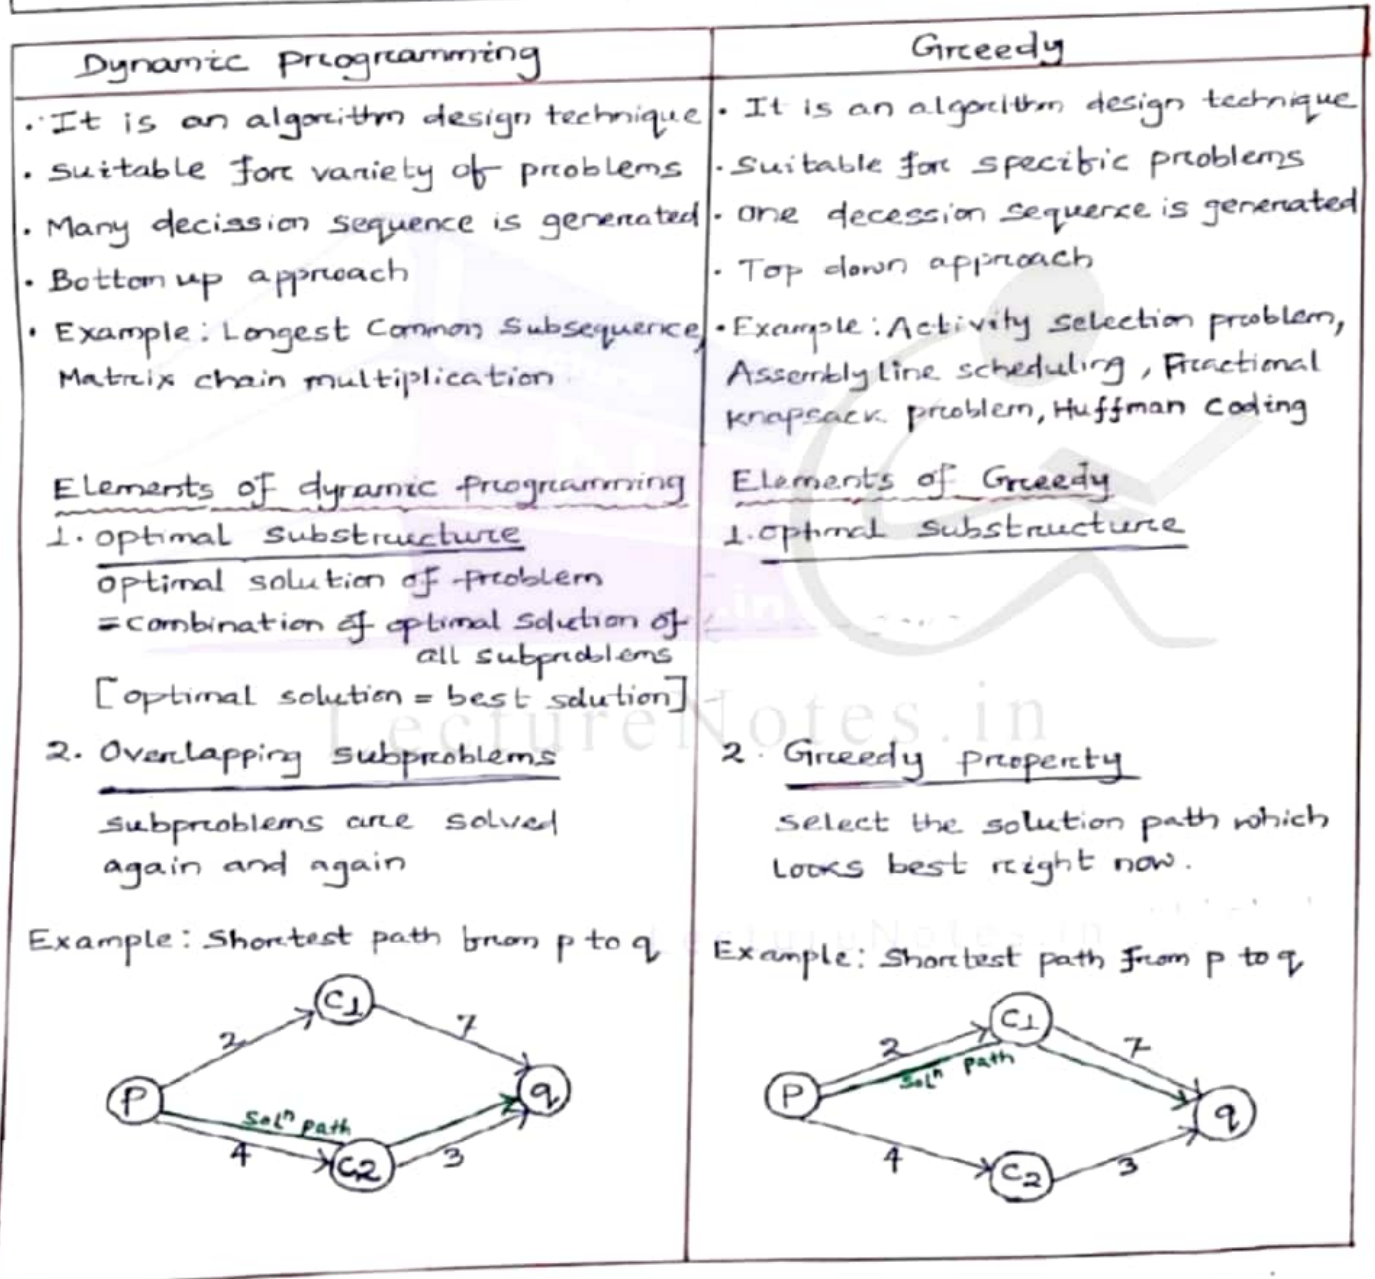 Dynamic Programming
• It is an algorithm design technique
• Suitable for variety of problems
• Many decission sequence is generated
• Bottom up approach
• Example: Longest Common Subsequence,
Matrix chain multiplication
Elements of dynamic programming
1. optimal substructure
optimal solution of problem
= combination of optimal solution of
all subproblems
[optimal solution = best solution]
2. Overlapping subproblems
subproblems are solved
again and again
Example: Shortest path from p to q
C1
2
7
P
Solⁿ path
q
4
C2
3
Greedy
• It is an algorithm design technique
• Suitable for specific problems
• one decession sequence is generated
• Top down approach
• Example: Activity selection problem,
Assembly line scheduling, Fractional
knapsack problem, Huffman Coding
Elements of Greedy
1. optimal substructure
2. Greedy property
select the solution path which
looks best right now.
Example: Shortest path from p to q
C1
2
7
Solⁿ path
P
q
4
C2
3
LectureNotes.in
LectureNotes.in
.in